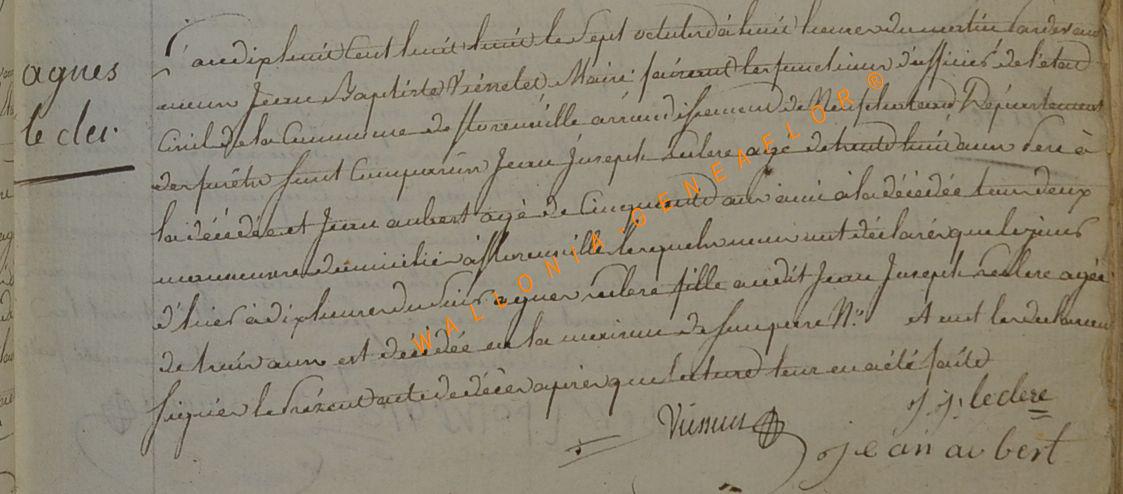 agnes
le cler
L'an dix huit cent huit le sept octobre à huit heures du matin pardevant
nous Jean Baptiste Maire faisant les fonctions d'officier de l'état
Civil de la Commune de florenville arrondissement de Neufchateau Département
des forêts sont Comparus Jean Joseph leclere agé de trente huit ans père à
la décédée et Jean aubert agé de Cinquante ans ami à la décédée tous deux
manoeuvre domicilié à florenville lesquels nous ont déclarés que le jour
d'hier à dix heures du soir agnes leclere fille audit Jean Joseph leclere agée
de trois ans est décédée en la maison de son père N° et ont les déclarans
signés le présent acte de décès après que lecture leur en a été faite
j j leclere
jean aubert
WALLONIA-GENEAELOR®